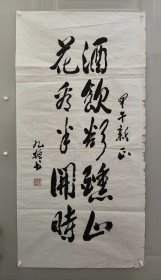 甲午新正
酒飲微醺
花看半開時
書